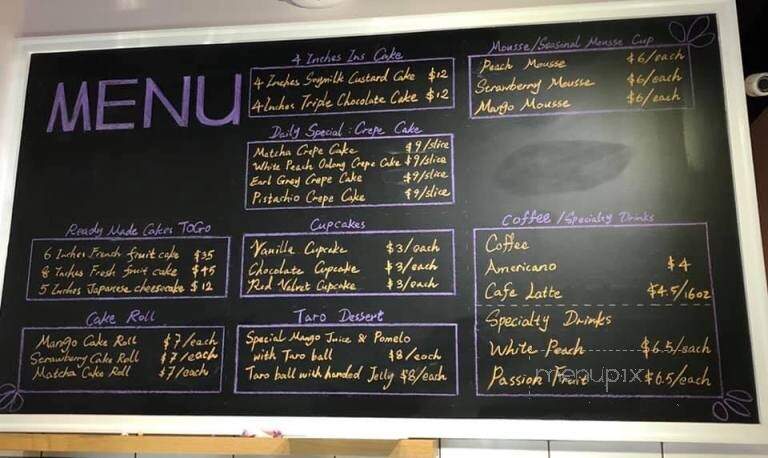 MENU
4 Inches Ins Cake
4 Inches Soymilk Custard Cake $12
4 Inches Triple Chocolate Cake $12
Daily Special : Crepe Cake
Matcha Crepe Cake $9/slice
White Peach Oolong Crepe Cake $9/slice
Earl Grey Crepe Cake $9/slice
Pistachio Crepe Cake $9/slice
Mousse/Seasonal Mousse Cup
Peach Mousse $6/each
Strawberry Mousse $6/each
Mango Mousse $6/each
Ready Made Cakes TOGO
6 Inches French fruit cake $35
8 Inches Fresh fruit cake $45
5 Inches Japanese cheesecake $12
Cupcakes
Vanilla Cupcake $3/each
Chocolate Cupcake $3/each
Red Velvet Cupcake $3/each
Coffee/Specialty Drinks
Coffee
Americano $4
Cafe Latte $4.5/16oz
Specialty Drinks
White Peach $6.5/each
Passion Fruit $6.5/each
Cake Roll
Mango Cake Roll $7/each
Strawberry Cake Roll $7/each
Matcha Cake Roll $7/each
Taro Dessert
Special Mango Juice & Pomelo
with Taro ball $8/each
Taro ball with handed Jelly $8/each
menupix